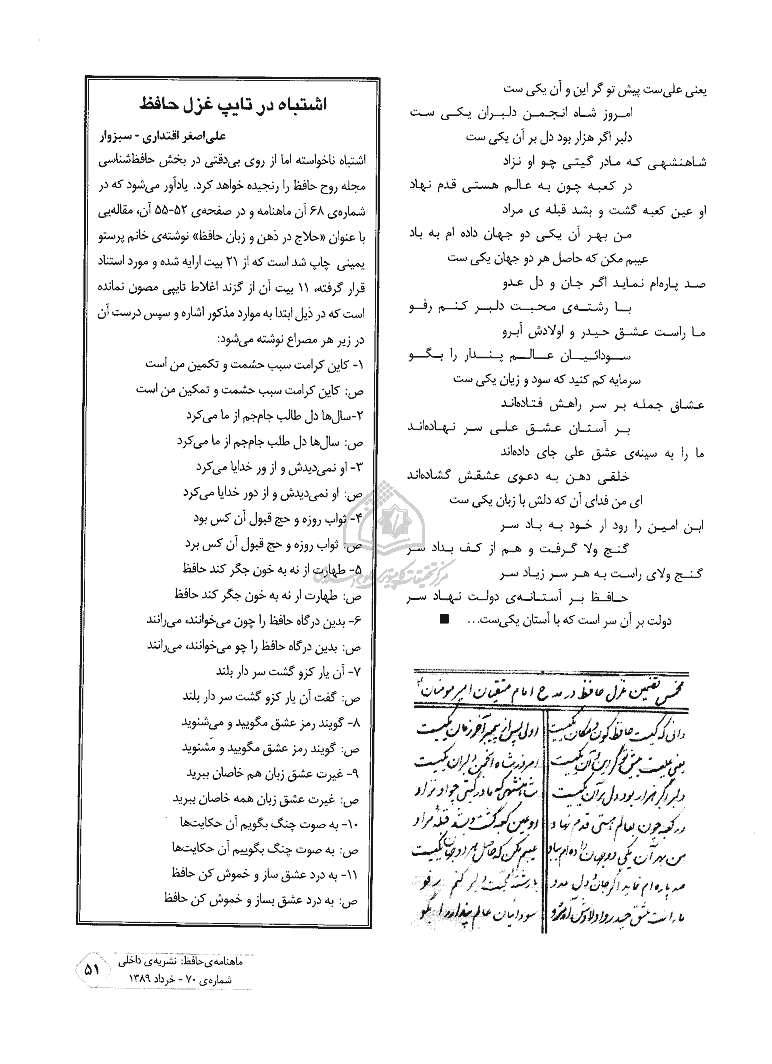 یعنی علی‌ست پیش تو گر این و آن یکی ست
امروز شاه انجمن دلبران یکی ست
دلبر اگر هزار بود دل بر آن یکی ست
شاهنشهی که مادر گیتی چو او نزاد
در کعبه چون به عالم هستی قدم نهاد
او عین کعبه گشت و بشد قبله ی مراد
من بهر آن یکی دو جهان داده ام به باد
عیبم مکن که حاصل هر دو جهان یکی ست
صد پاره‌ام نماید اگر جان و دل عدو
با رشته‌ی محبت دلبر کنم رفو
ما راست عشق حیدر و اولادش آبرو
سودائیان عالم پندار را بگو
سرمایه کم کنید که سود و زیان یکی ست
عشاق جمله بر سر راهش فتاده‌اند
بر آستان عشق علی سر نهاده‌اند
ما را به سینه‌ی عشق علی جای داده‌اند
خلقی دهن به دعوی عشقش گشاده‌اند
ای من فدای آن که دلش با زبان یکی ست
ابن امین را رود ار خود به باد سر
گنج ولا گرفت و هم از کف بداد سر
گنج ولای راست به هر سر زیاد سر
حافظ بر آستانه‌ی دولت نهاد سر
دولت بر آن سر است که با آستان یکی‌ست... ■
مخمس تضمین غزل حافظ در مدح امام متقیان امیر مومنان
اشتباه در تایپ غزل حافظ
علی‌اصغر اقتداری - سبزوار
اشتباه ناخواسته اما از روی بی‌دقتی در بخش حافظ‌شناسی
مجله روح حافظ را رنجیده خواهد کرد. یادآور می‌شود که در
شماره‌ی ۶۸ آن ماهنامه و در صفحه‌ی ۵۲-۵۵ آن، مقاله‌یی
با عنوان «حلاج در ذهن و زبان حافظ» نوشته‌ی خانم پرستو
یمینی چاپ شد است که از ۲۱ بیت ارایه شده و مورد استناد
قرار گرفته، ۱۱ بیت آن از گزند اغلاط تایپی مصون نمانده
است که در ذیل ابتدا به موارد مذکور اشاره و سپس درست آن
در زیر هر مصراع نوشته می‌شود:
۱- کاین کرامت سبب حشمت و تکمین من است
ص: کاین کرامت سبب حشمت و تمکین من است
۲-سال‌ها دل طالب جام‌جم از ما می‌کرد
ص: سال‌ها دل طلب جام‌جم از ما می‌کرد
۳- او نمی‌دیدش و از ور خدایا می‌کرد
ص: او نمی‌دیدش و از دور خدایا می‌کرد
۴- ثواب روزه و حج قبول آن کس بود
ص: ثواب روزه و حج قبول آن کس برد
۵- طهارت از نه به خون جگر کند حافظ
ص: طهارت ار نه به خون جگر کند حافظ
۶- بدین درگاه حافظ را چون می‌خوانند، می‌رانند
ص: بدین درگاه حافظ را چو می‌خوانند، می‌رانند
۷- آن یار کزو گشت سر دار بلند
ص: گفت آن یار کزو گشت سر دار بلند
۸- گویند رمز عشق مگویید و می‌شنوید
ص: گویند رمز عشق مگویید و مشنوید
۹- غیرت عشق زبان هم خاصان ببرید
ص: غیرت عشق زبان همه خاصان ببرید
۱۰- به صوت چنگ بگویم آن حکایت‌ها
ص: به صوت چنگ بگوییم آن حکایت‌ها
۱۱- به درد عشق ساز و خموش کن حافظ
ص: به درد عشق بساز و خموش کن حافظ
ماهنامه‌ی حافظ: نشریه‌ی داخلی
شماره‌ی ۷۰ - خرداد ۱۳۸۹
۵۱